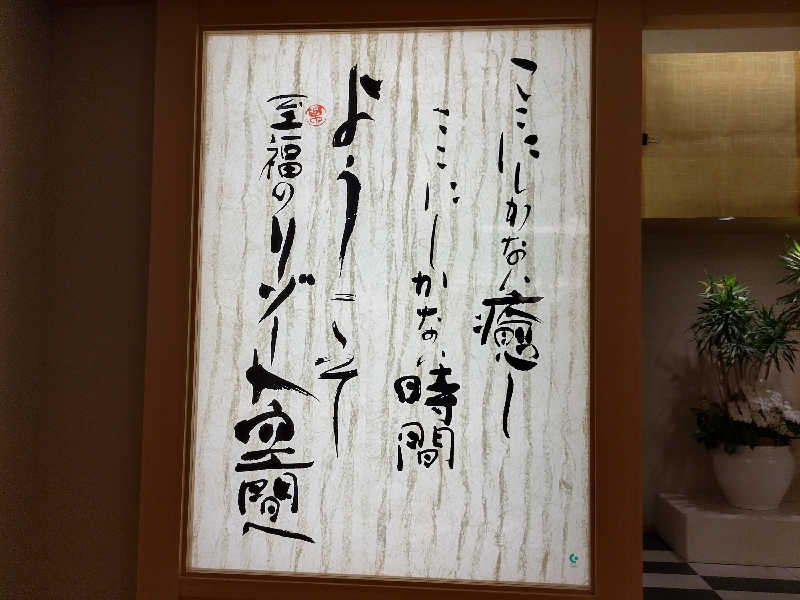 ここにしかない癒し
ここにしかない時間
ようこそ
至福のリゾート空間へ